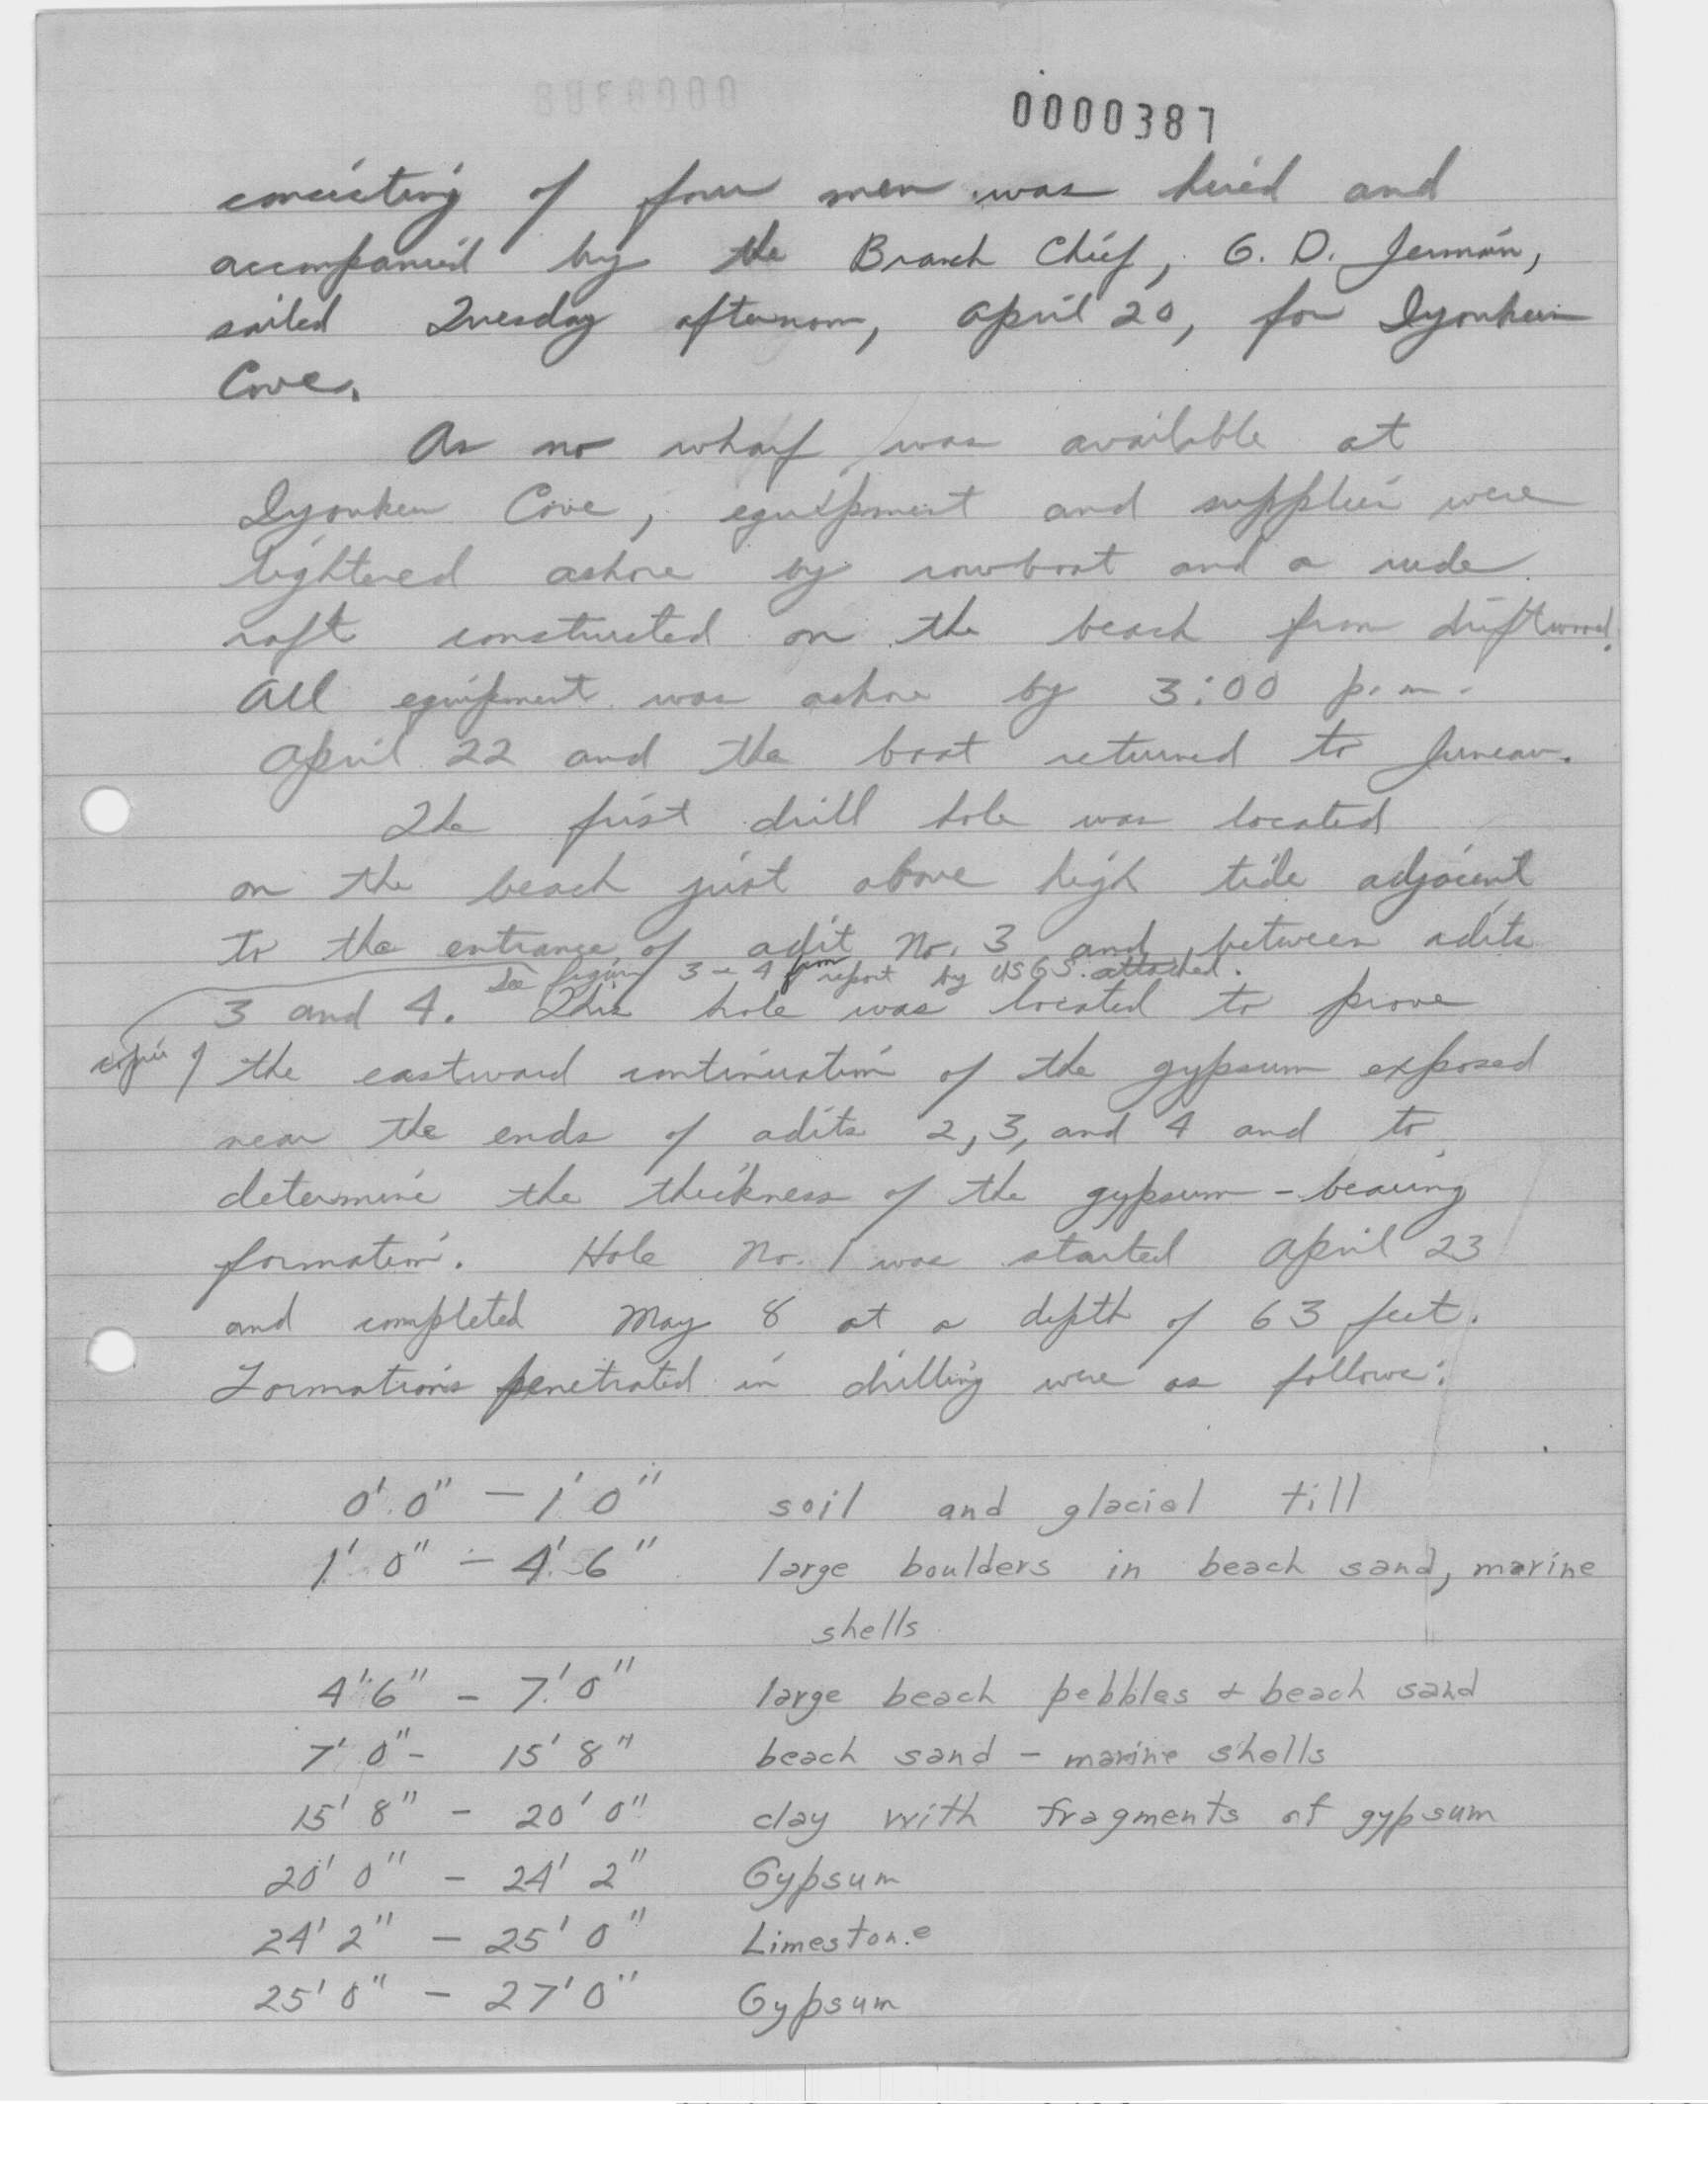 0000387
consisting of four men was hired and
accompanied by the Branch Chief, G. D. Jermain,
sailed Tuesday afternoon, April 20, for Iyoukeen
Cove.
As no wharf was available at
Iyoukeen Cove, equipment and supplies were
lightered ashore by rowboat and a rude
raft constructed on the beach from driftwood.
All equipment was ashore by 3:00 p.m.
April 22 and the boat returned to Juneau.
The first drill hole was located
on the beach just above high tide adjacent
to the entrance of adit No. 3 and between adits
See figures 3 - 4 from report by USGS. attached.
3 and 4. This hole was located to prove
copies of
the eastward continuation of the gypsum exposed
near the ends of adits 2, 3, and 4 and to
determine the thickness of the gypsum-bearing
formation. Hole No. 1 was started April 23
and completed May 8 at a depth of 63 feet.
Formations penetrated in drilling were as follows:
0' 0" - 1' 0" soil and glacial till
1' 0" - 4' 6" large boulders in beach sand, marine
shells
4' 6" - 7' 0" large beach pebbles + beach sand
7' 0" - 15' 8" beach sand - marine shells
15' 8" - 20' 0" clay with fragments of gypsum
20' 0" - 24' 2" Gypsum
24' 2" - 25' 0" Limestone
25' 0" - 27' 0" Gypsum